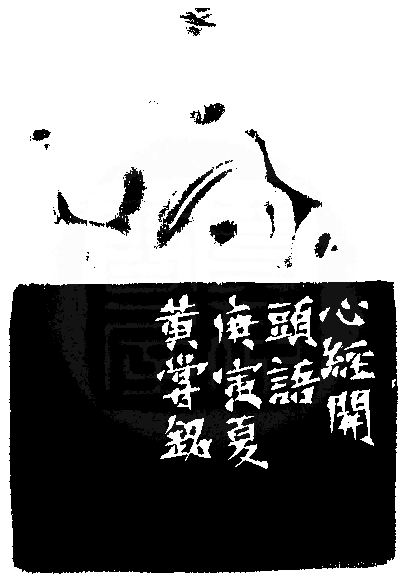 心經開
頭語
庚寅夏
黃嘗銘